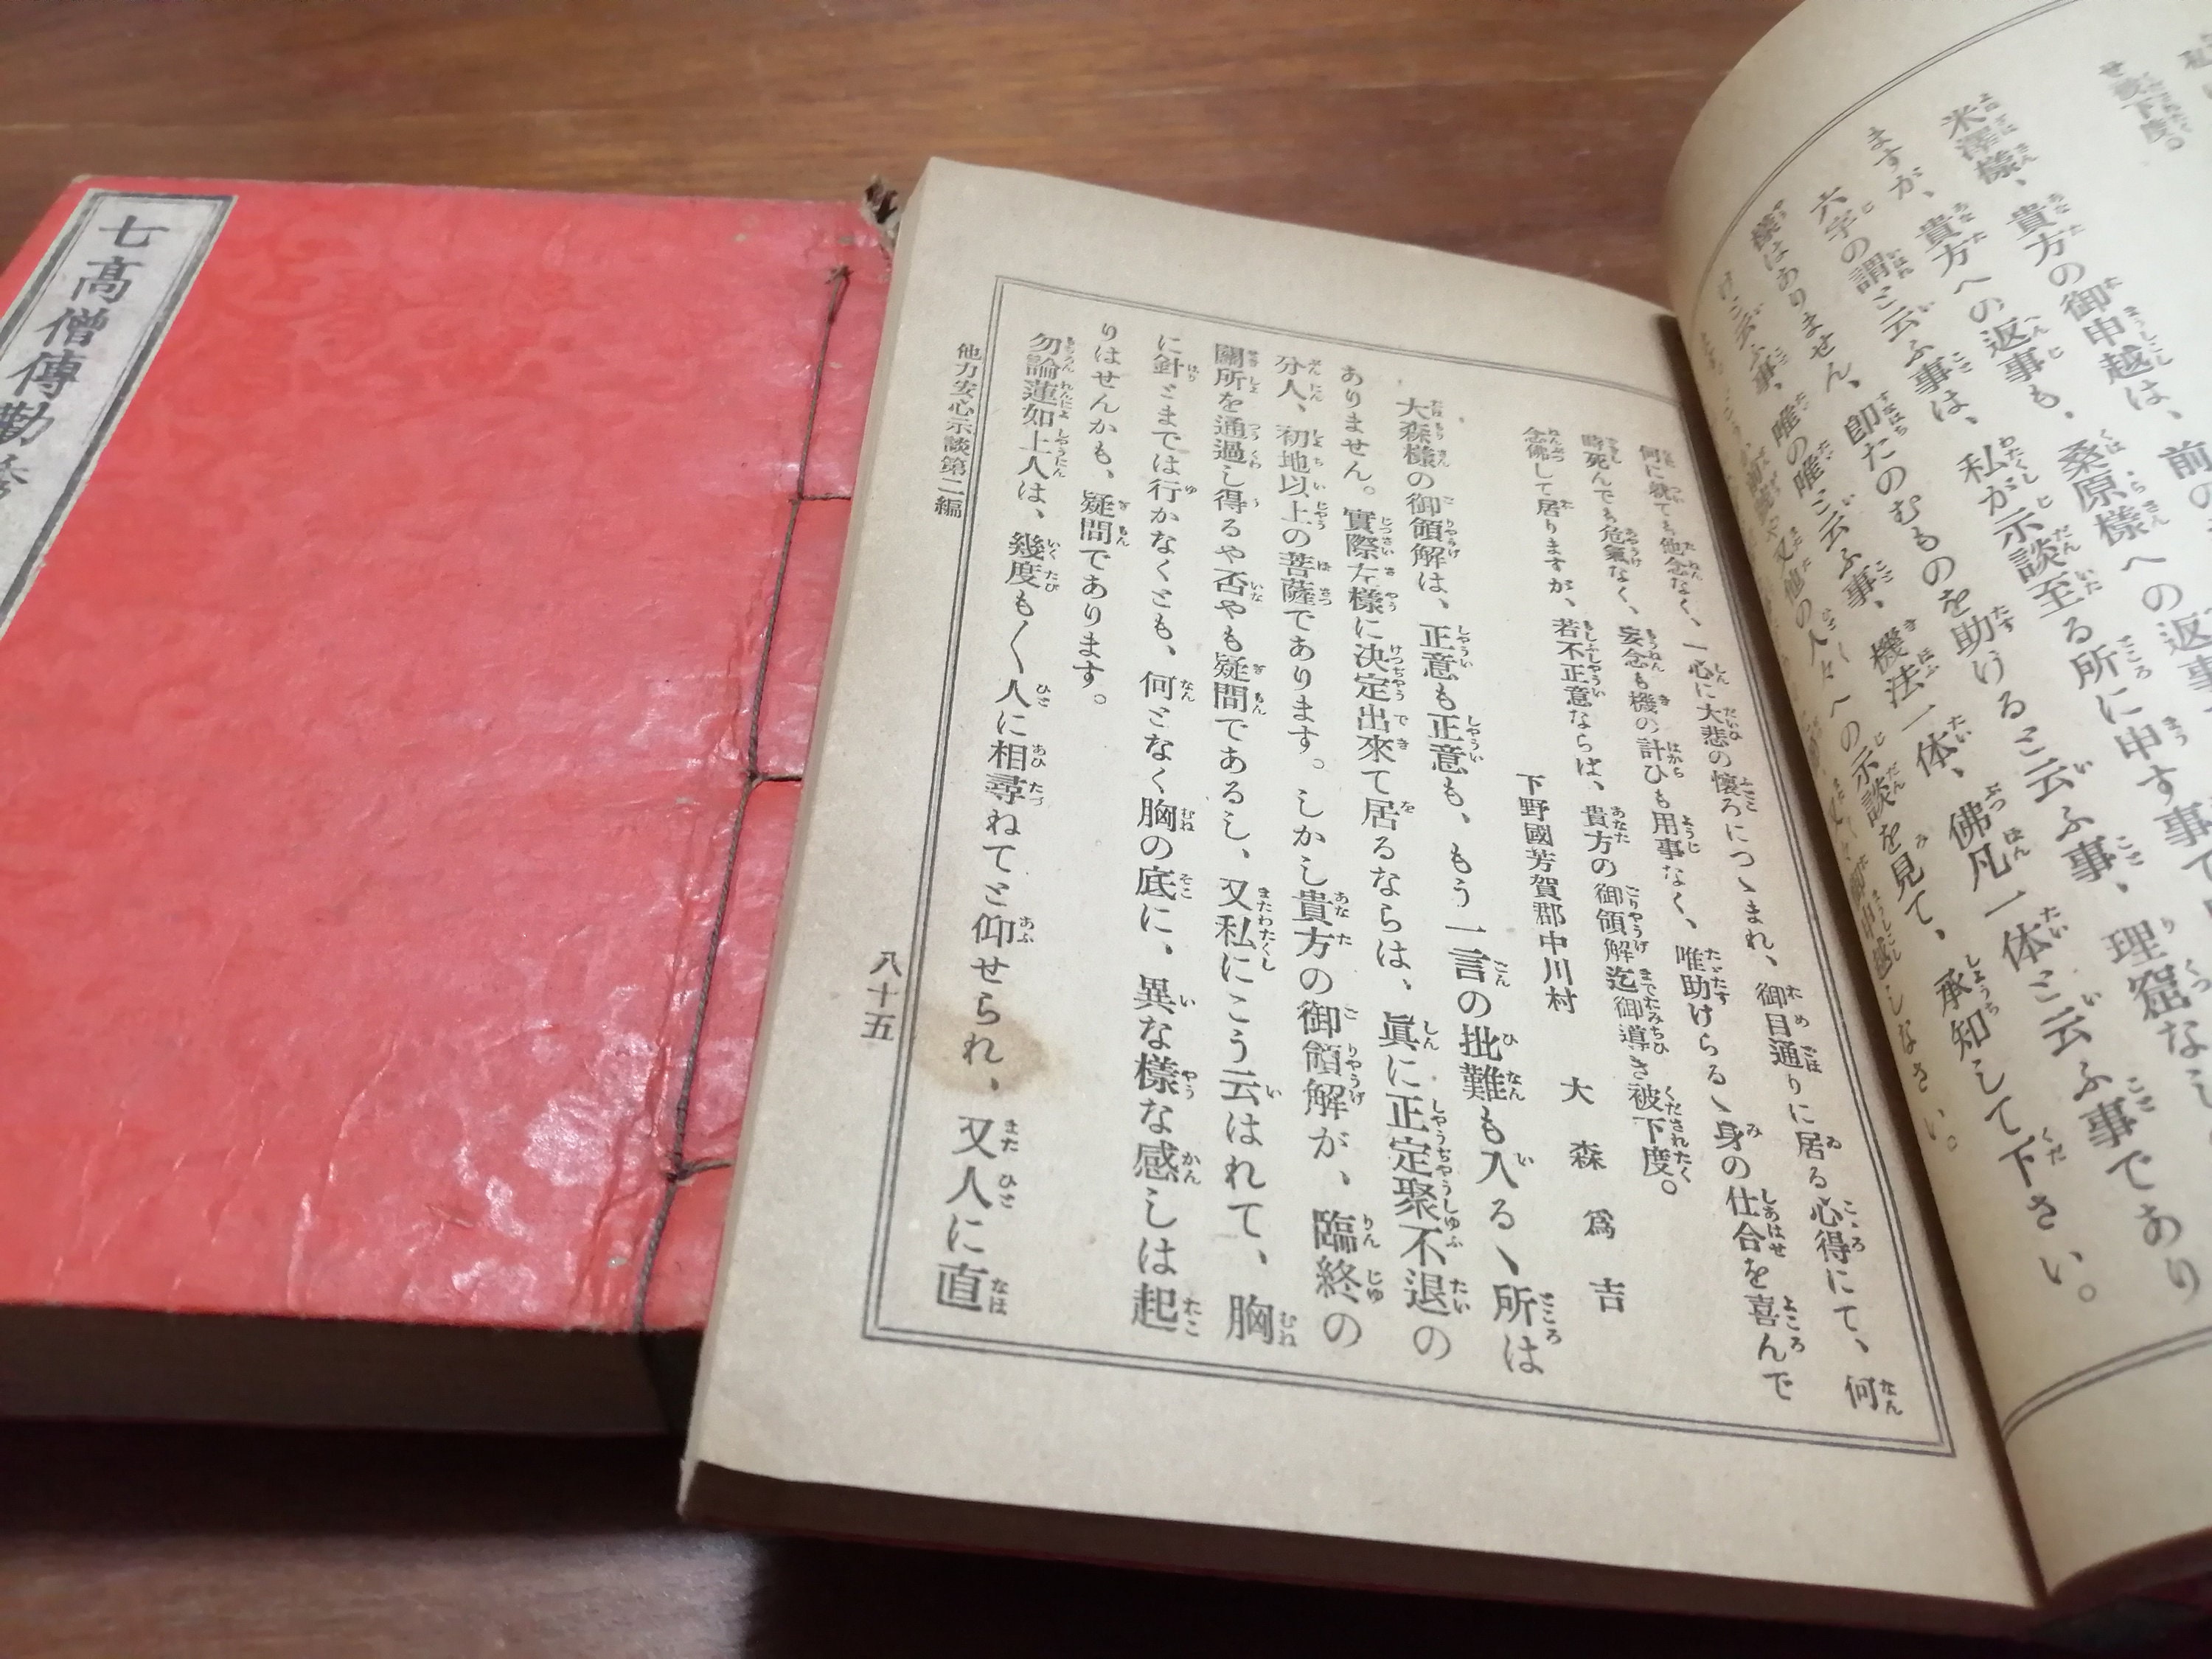 七高僧傳勸
米澤樣、貴方の御申越は、前の
ますが、貴方への返事も、桑原樣への返事
六字の謂と云ふ事は、私が示談至る所に申す事で
樣はありません、卽たのむものを助けると云ふ事、理窟なし
けと云ふ事、唯の唯と云ふ事、機法一体、佛凡一体と云ふ事であり
又他の人々への示談を見て、承知して下さい。
何に就ても他念なく、一心に大悲の懷ろにつゝまれ、御目通りに居る心得にて、何
時死んでも危氣なく、妄念も機の計ひも用事なく、唯助けらるゝ身の仕合を喜んで
念佛して居りますが、若不正意ならは、貴方の御領解迄御導き被下度。
下野國芳賀郡中川村　大森爲吉
大森樣の御領解は、正意も正意も、もう一言の批難も入るゝ所は
ありません。實際左樣に决定出來て居るならは、眞に正定聚不退の
分人、初地以上の菩薩であります。しかし貴方の御領解が、臨終の
關所を通過し得るや否やも疑問であるし、又私にこう云はれて、胸
に針とまでは行かなくとも、何となく胸の底に、異な樣な感しは起
りはせんかも、疑問であります。
勿論蓮如上人は、幾度も〱人に相尋ねてと仰せられ、又人に直
他力安心示談第二編
八十五